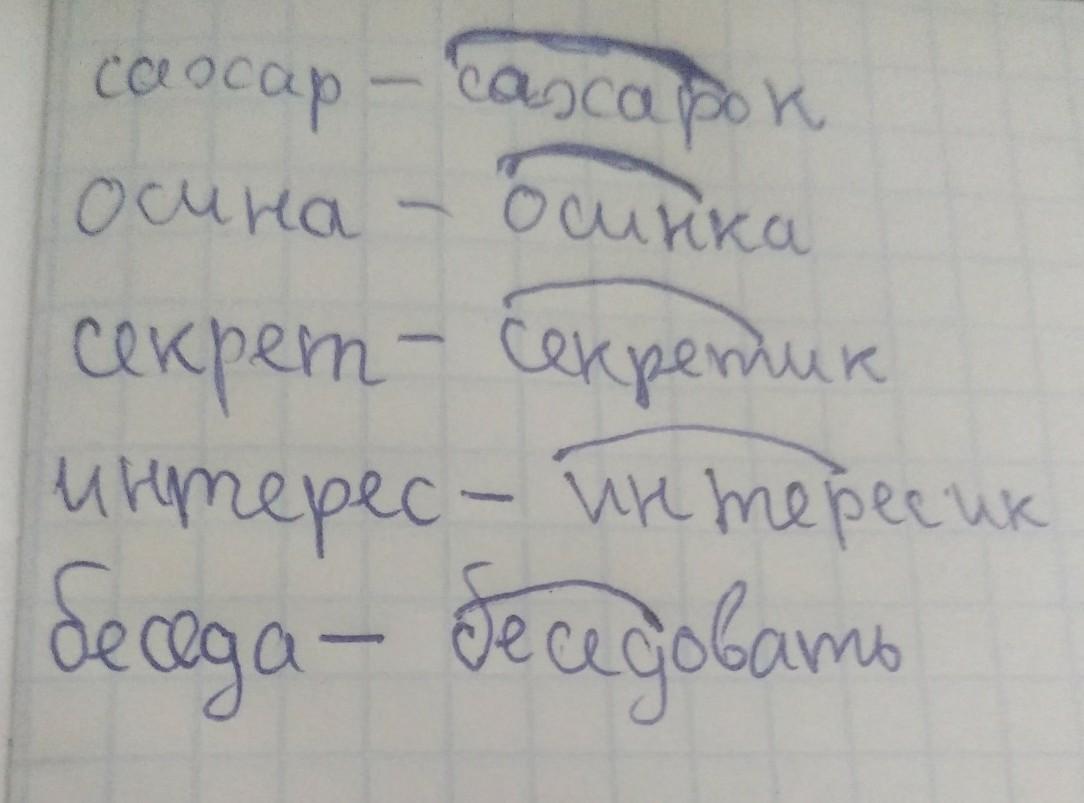 сахар – сахарок
осина – осинка
секрет – секретик
интерес – интересик
беседа – беседовать